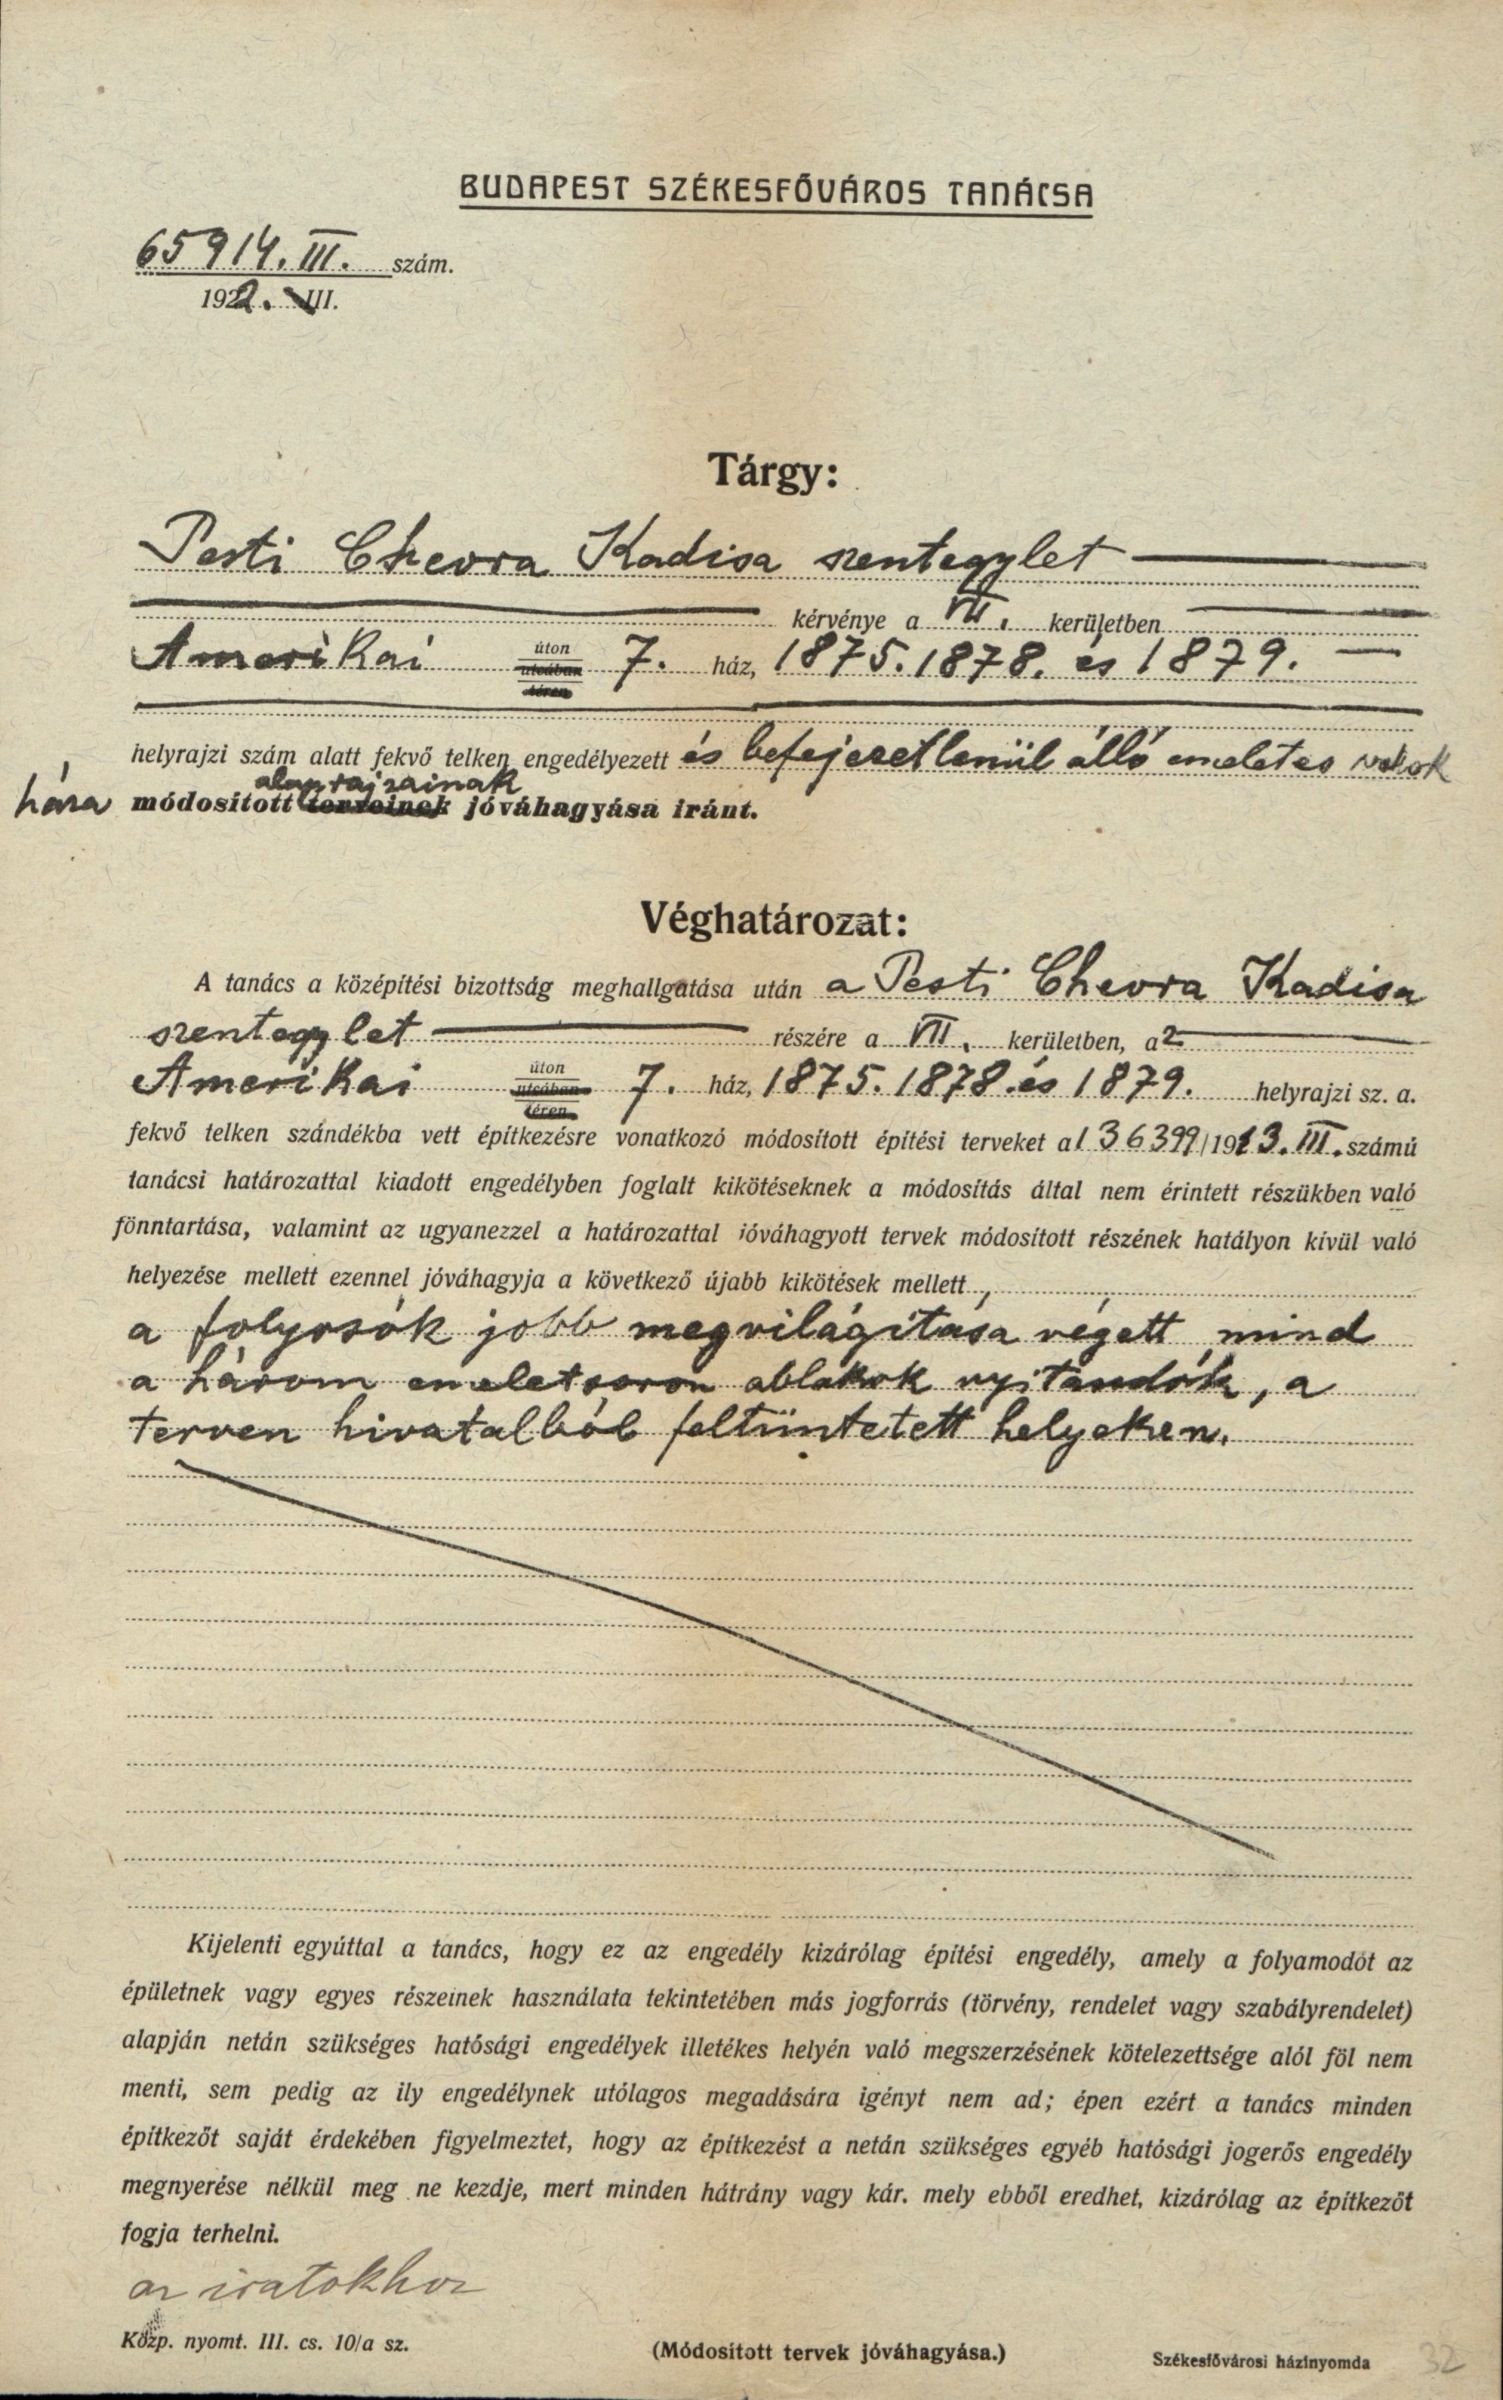 BUDAPEST SZÉKESFŐVÁROS TANÁCSA
65914. III. szám.
1922. III.
Tárgy:
Pesti Chevra Kadisa szentegylet
kérvénye a VII. kerületben
Amerikai úton utcában téren 7. ház, 1875. 1878. és 1879.
helyrajzi szám alatt fekvő telken engedélyezett és befejezetlenül álló emeletes vakok
alaprajzainak
háza módosított terveinek jóváhagyása iránt.
Véghatározat:
A tanács a középítési bizottság meghallgatása után a Pesti Chevra Kadisa
szentegylet részére a VII. kerületben, az
Amerikai úton utcában téren 7. ház, 1875. 1878. és 1879. helyrajzi sz. a.
fekvő telken szándékba vett építkezésre vonatkozó módosított építési terveket a 136399/1913. III. számú
tanácsi határozattal kiadott engedélyben foglalt kikötéseknek a módosítás által nem érintett részükben való
fönntartása, valamint az ugyanezzel a határozattal jóváhagyott tervek módosított részének hatályon kívül való
helyezése mellett ezennel jóváhagyja a következő újabb kikötések mellett,
a folyosók jobb megvilágítása végett mind
a három emeletsoron ablakok nyitandók, a
terven hivatalból feltüntetett helyeken.
Kijelenti egyúttal a tanács, hogy ez az engedély kizárólag építési engedély, amely a folyamodót az
épületnek vagy egyes részeinek használata tekintetében más jogforrás (törvény, rendelet vagy szabályrendelet)
alapján netán szükséges hatósági engedélyek illetékes helyén való megszerzésének kötelezettsége alól föl nem
menti, sem pedig az ily engedélynek utólagos megadására igényt nem ad; épen ezért a tanács minden
építkezőt saját érdekében figyelmeztet, hogy az építkezést a netán szükséges egyéb hatósági jogerős engedély
megnyerése nélkül meg ne kezdje, mert minden hátrány vagy kár. mely ebből eredhet, kizárólag az építkezőt
fogja terhelni.
az iratokhoz
Közp. nyomt. III. cs. 10/a sz.
(Módosított tervek jóváhagyása.)
Székesfővárosi házinyomda
32